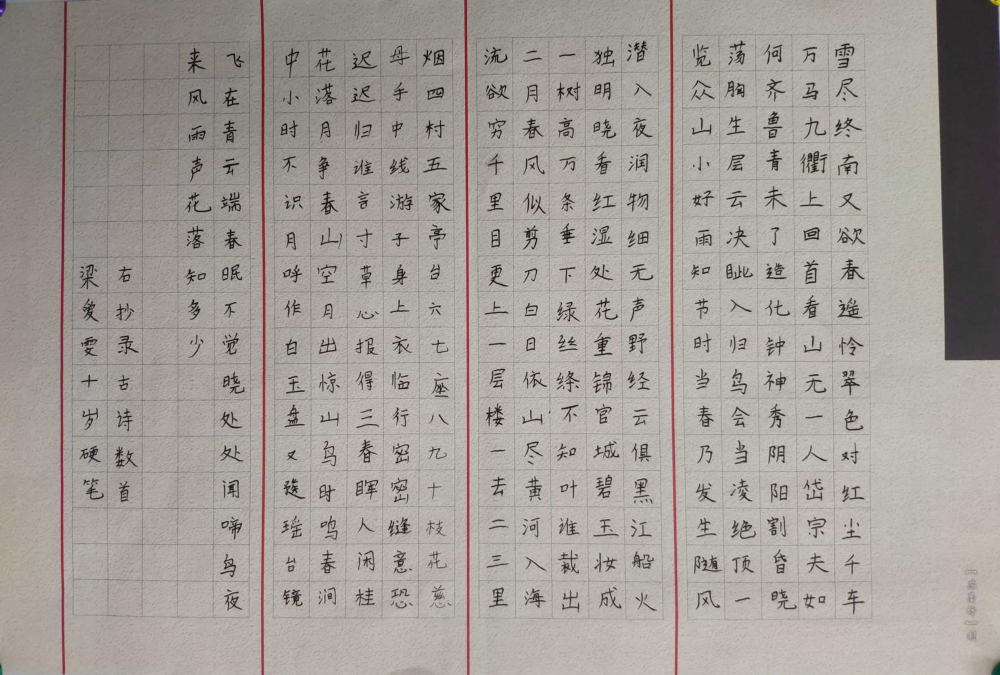 雪尽终南又欲春遥怜翠色对红尘千车
万马九衢上回首看山无一人岱宗夫如
何齐鲁青未了造化钟神秀阴阳割昏晓
荡胸生层云决眦入归鸟会当凌绝顶一
览众山小好雨知节时当春乃发生随风
潜入夜润物细无声野经云俱黑江船火
独明晓看红湿处花重锦官城碧玉妆成
一树高万条垂下绿丝绦不知叶谁裁出
二月春风似剪刀白日依山尽黄河入海
流欲穷千里目更上一层楼一去二三里
烟四村五家亭台六七座八九十枝花慈
母手中线游子身上衣临行密密缝意恐
迟迟归谁言寸草心报得三春晖人闲桂
花落月争春山空月出惊山鸟时鸣春涧
中小时不识月呼作白玉盘又疑瑶台镜
飞在青云端春眠不觉晓处处闻啼鸟夜
来风雨声花落知多少
右抄录古诗数首
梁爱雯十岁硬笔